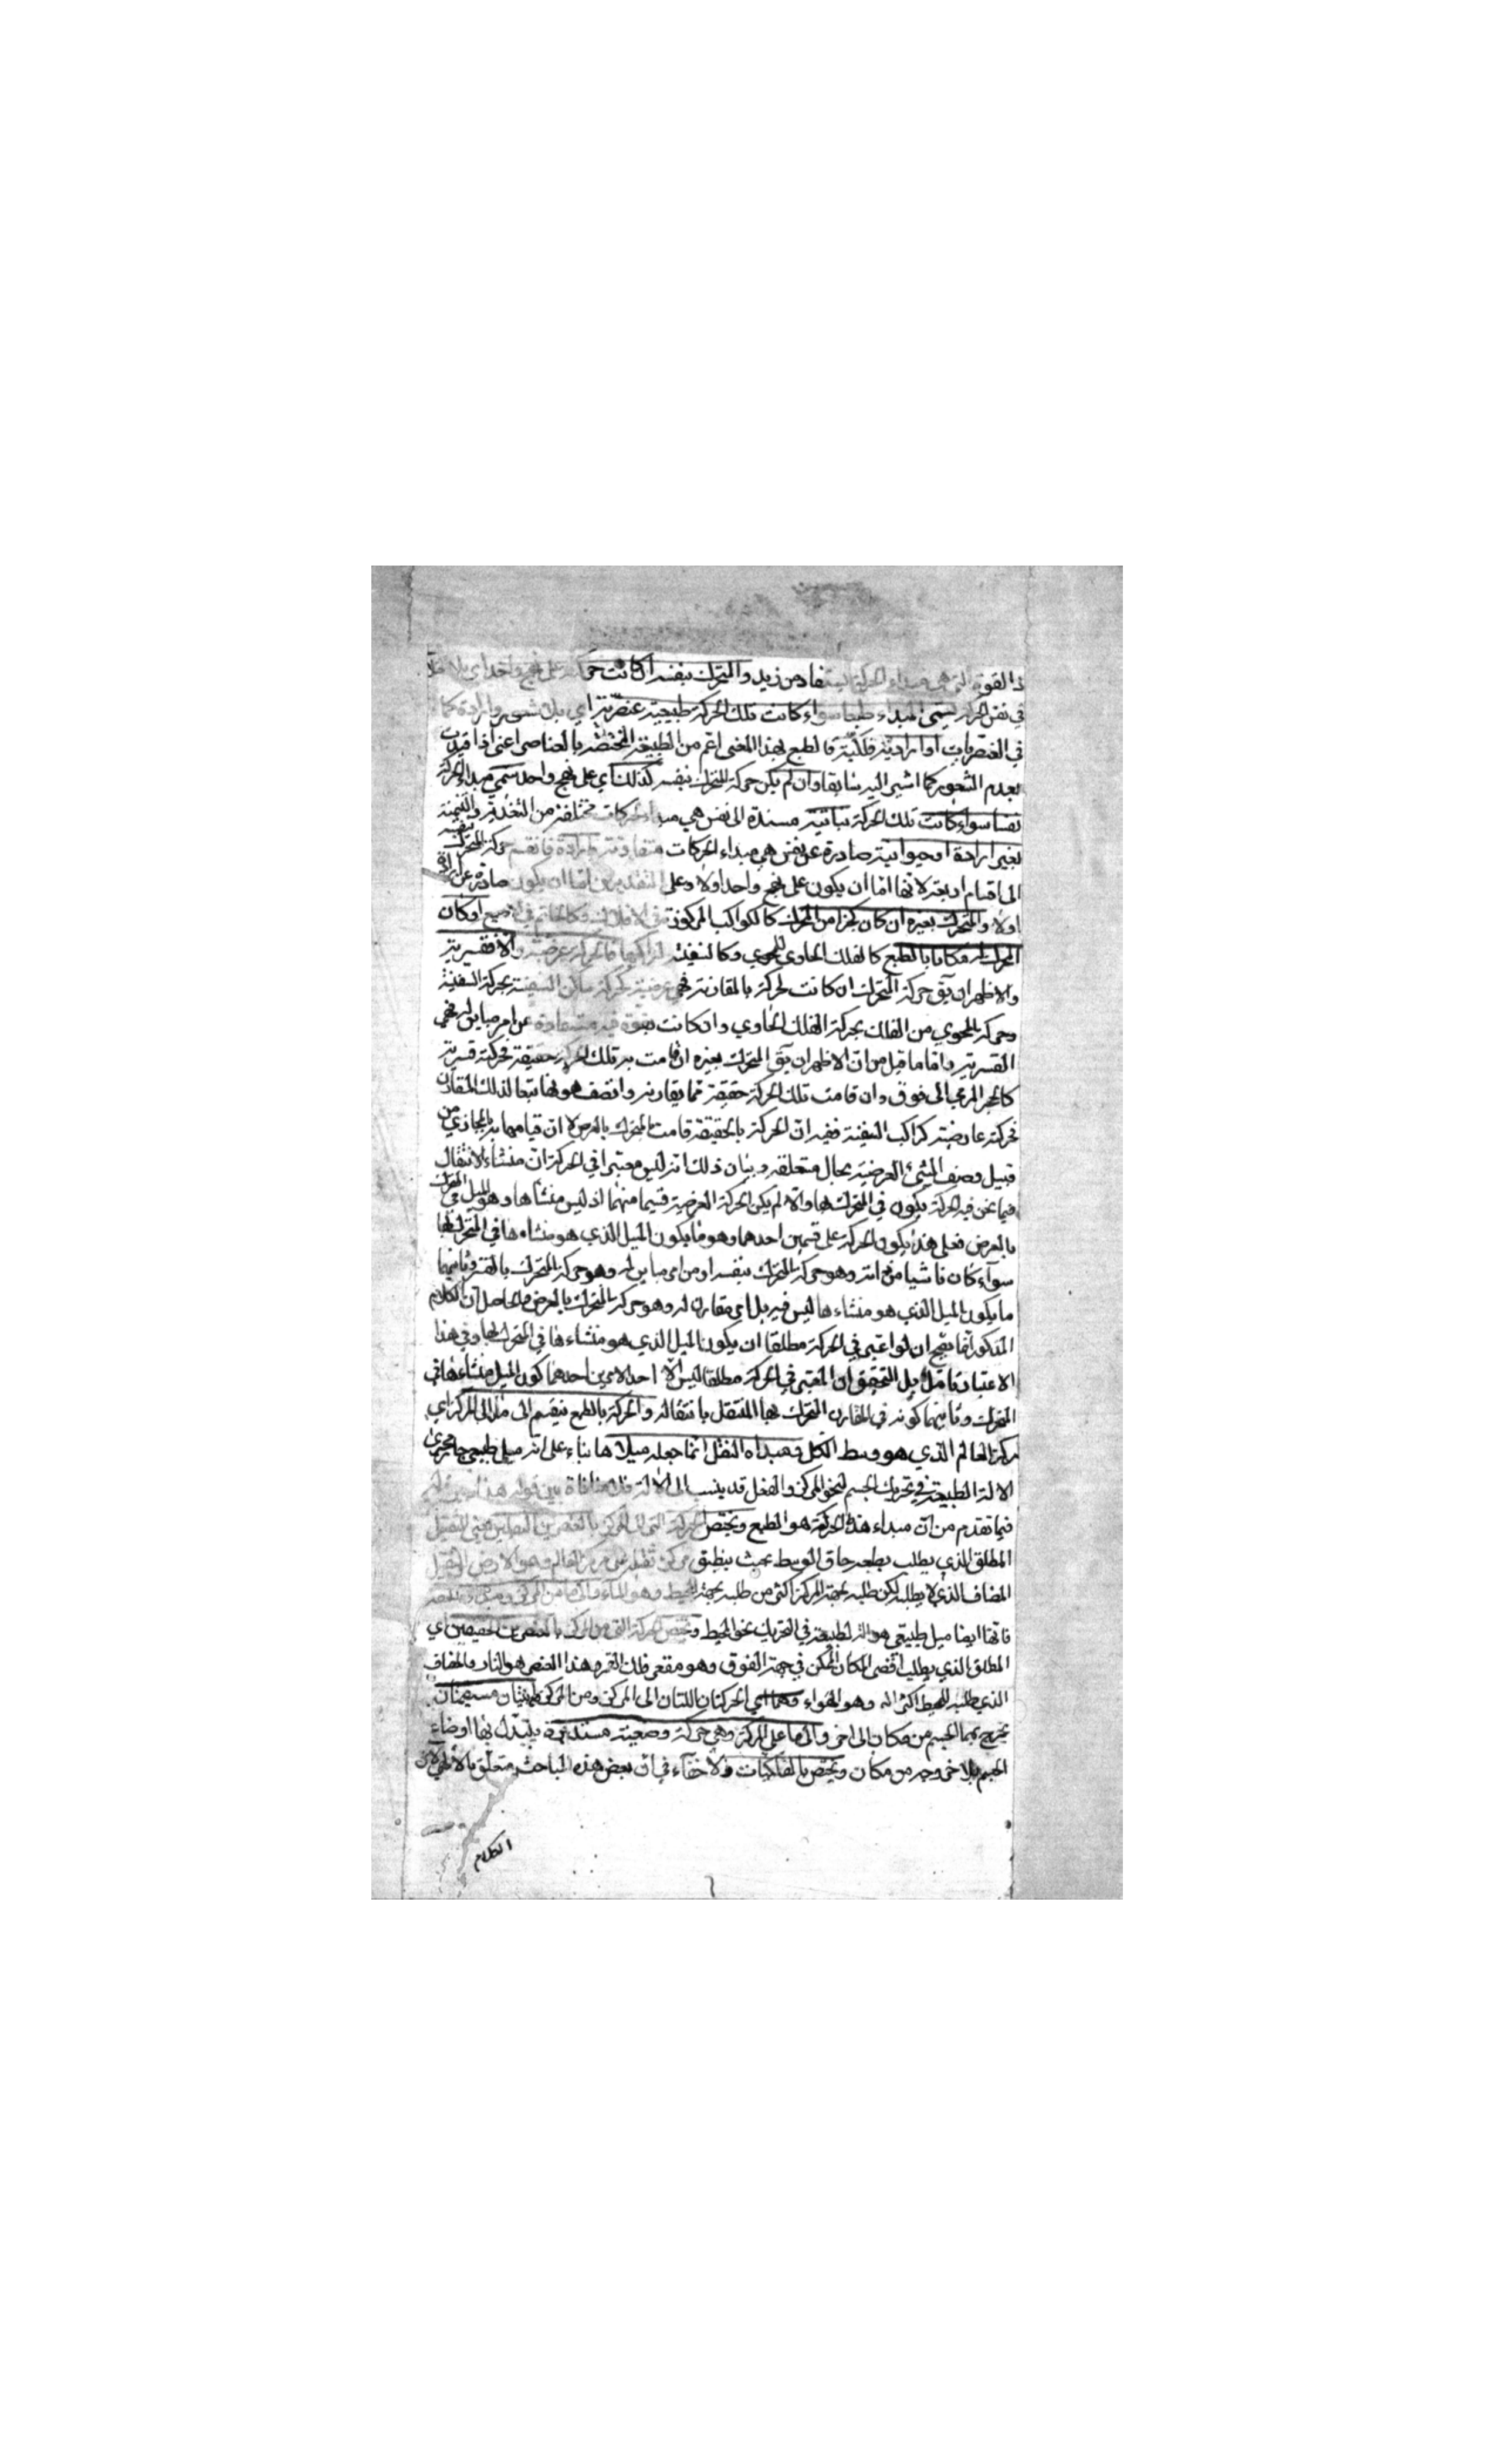 ذا القوة التي هي مبداء الحركة ليست نفاد من زيد والمتحرك بنفسه ان كانت حركته على نهج واحد اي بلا
في نفس الحركة يسمى المبداء طبعا سواء كانت تلك الحركة طبيعية عنصرية اي بلا شعور وارادة كما
في العنصريات او ارادية فلكية فالطبع بهذا المعنى اعم من الطبيعة المختصة بالعناصر اعني اذا قيدت
بعدم الشعور كما اشير اليه سابقا وان لم يكن حركة المتحرك بنفسه كذلك اي على نهج واحد سمي مبداء الحركة
نفسا سواء كانت تلك الحركة نباتية مسندة الى نفس هي مبداء لحركات مختلفة من التغذية والتنمية
بغير ارادة او حيوانية صادرة عن نفس هي مبداء الحركات متفاوتة بارادة فانقسم حركة المتحرك بنفسه
الى اقسام اربعة لانها اما ان يكون على نهج واحد اولا وعلى التقديرين اما ان يكون صادرة عن ارادة
اولا والمتحرك بغيره ان كان كجزء من المحرك كالكواكب المركوزة في الافلاك وكالخاتم في الاصبع او كان
المحرك له مكانا بالطبع كالفلك الحاوي للمحوي وكالسفينة لراكبها فالحركة عرضية والا فقسرية
والاظهر ان يق حركة المتحرك ان كانت لحركة بالمقارنة فهي عرضية كحركة ساكن السفينة بحركة السفينة
وحركة المحوي من الفلك بحركة الفلك الحاوي وان كانت بقوة فيه مستفادة عن امر مباين له فهي
القسرية واما ما قيل من ان الاظهر ان يق المتحرك بغيره ان قامت به تلك الحركة حقيقة فحركته قسرية
كالحجر المرمي الى فوق وان قامت تلك الحركة حقيقة بما يقارنه واتصف هو بها تبعا لذلك المقارن
فحركته عارضية كراكب السفينة ففيه ان الحركة بالحقيقة قامت بالمتحرك بالعرض لا ان قيامها به بالمجاز من
قبيل وصف الشئ العرضية بحال متعلقه وبيان ذلك انه ليس معتبرا في الحركة ان منشاء الانتقال
فيما نحن فيه الحركة يكون في المتحرك بها والا لم يكن الحركة العرضية قسيما منهما اذ ليس منشاها وهو الميل في المتحرك
بالعرض فعلى هذا يكون الحركة على قسمين احدهما وهو ما يكون الميل الذي هو منشاءها في المتحرك بها
سواء كان ناشيا من ذاته وهو حركة المتحرك بنفسه او من امر مباين له وهو حركة المتحرك بالقسر وثانيهما
ما يكون الميل الذي هو منشاءها ليس فيه بل امر مقارن له وهو حركة المتحرك بالعرض والحاصل ان الكلام
المذكور انما يتجه ان لو اعتبر في الحركة مطلقا ان يكون الميل الذي هو منشاءها في المتحرك بها وفي هذا
الاعتبار تامل بل التحقيق ان المعتبر في الحركة مطلقا ليس الا احد الامرين احدهما كون الميل منشاءها في
المتحرك وثانيهما كونه في المقارن المتحرك بها المنتقل بانتقاله والحركة بالطبع ينقسم الى ما الى المركز اي
مركز العالم الذي هو وسط الكل ومبداه الثقل انما جعله ميلا ها بناء على انه ميل طبيعي جار مجرى
الالة الطبيعية في تحريك الجسم نحو المركز والفعل قد ينسب الى الالة فلا منافاة بين قوله هذا وبين
فيما تقدم من ان مبداء هذه الحركة هو الطبع ويختص الحركة التي الى المركز بالعنصرين الثقيلين يعني الثقيل
المطلق الذي يطلب بطبعه حاق الوسط بحيث ينطبق مركز ثقله على مركز العالم وهو الارض والثقيل
المضاف الذي لا يطلبه لكن طلبه بجهة المركز اكثر من طلبه بجهة المحيط وهو الماء والى ما من المركز ومبداءه
فانها ايضا ميل طبيعي هو الة الطبيعة في التحريك نحو المحيط ويختص الحركة التي من المركز بالعنصرين الخفيفين اي
المطلق الذي يطلب اقصى المكان الممكن في جهة الفوق وهو مقعر فلك القمر وهذا العنصر هو النار والمضاف
الذي طلبه للمحيط اكثر اله وهو الهواء وهما اي الحركتان اللتان الى المركز ومن المركز مستقيمتان
يخرج بهما الجسم من مكان الى اخر والى ما على المركز وهي حركة وضعية مستديرة يتبدل بها اوضاع
الجسم بلا خروجه من مكان ويختص بالفلكيات ولا خفاء في ان بعض هذه المباحث متعلق بالالهي لان
الكلام